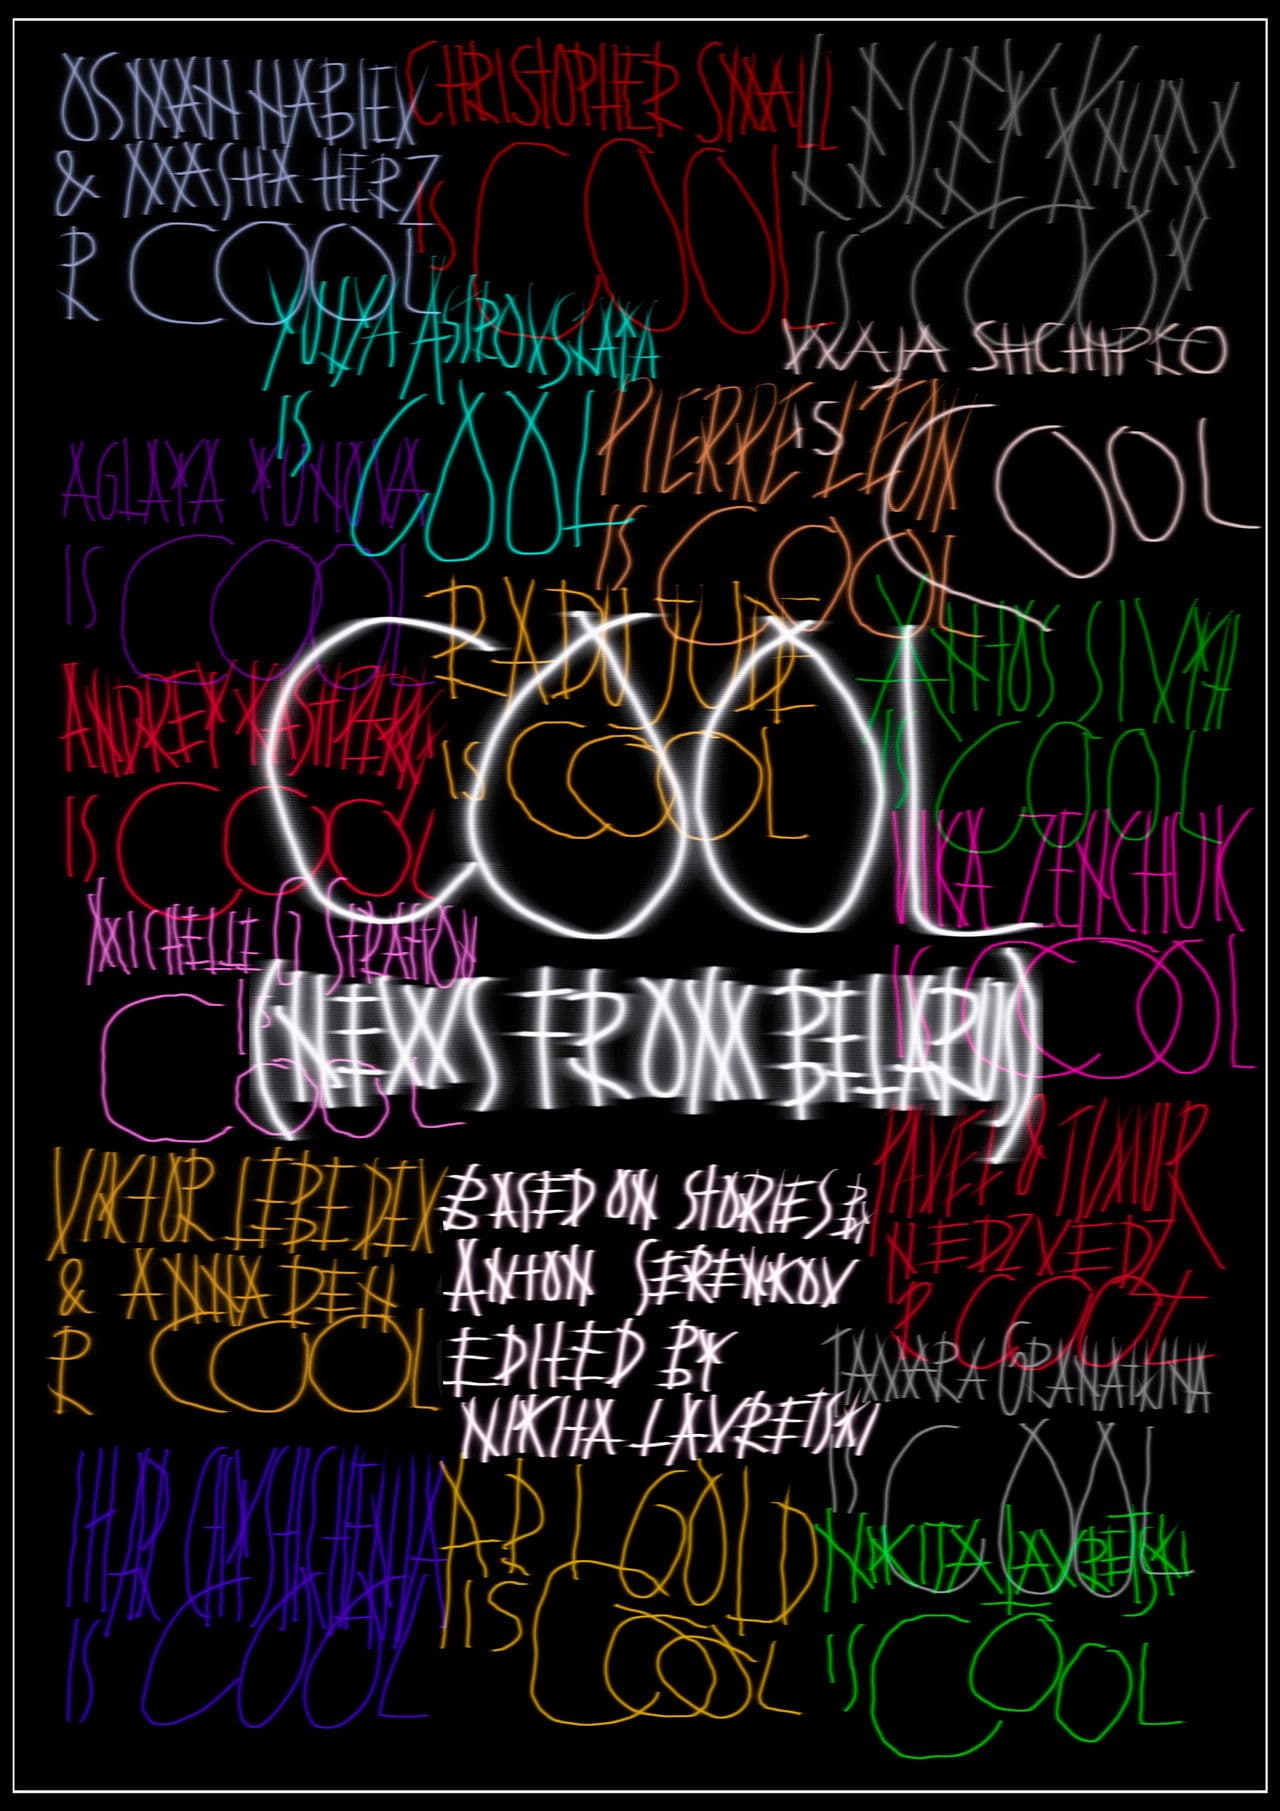 OSMAN NABIEV
& MASHA HERZ
R COOL
CHRISTOPHER SMALL
IS COOL
LESLEY
IS COOL
YULYA ASTROVSKAYA
IS COOL
VAJA SHCHIPKO
IS COOL
PIERRE LEON
IS COOL
AGLAYA YUNOVA
IS COOL
RADU JUDE
IS COOL
XANTHOS SILVAH
IS COOL
ANDREY KASHPERKO
IS COOL
VIKA ZENCHUK
IS COOL
COOL
(NEWS FROM BELARUS)
MICHELLE STRATTON
IS COOL
PAVEL & TIMUR
NEDZVEDZ
R COOL
VIKTOR LEBEDEV
& ANNA DEN
R COOL
BASED ON STORIES BY
ANTON SERENKOV
EDITED BY
NIKITA LAVRETSKI
TAMARA
IS COOL
IS COOL
ARI GOLD
IS COOL
NIKITA LAVRETSKI
IS COOL